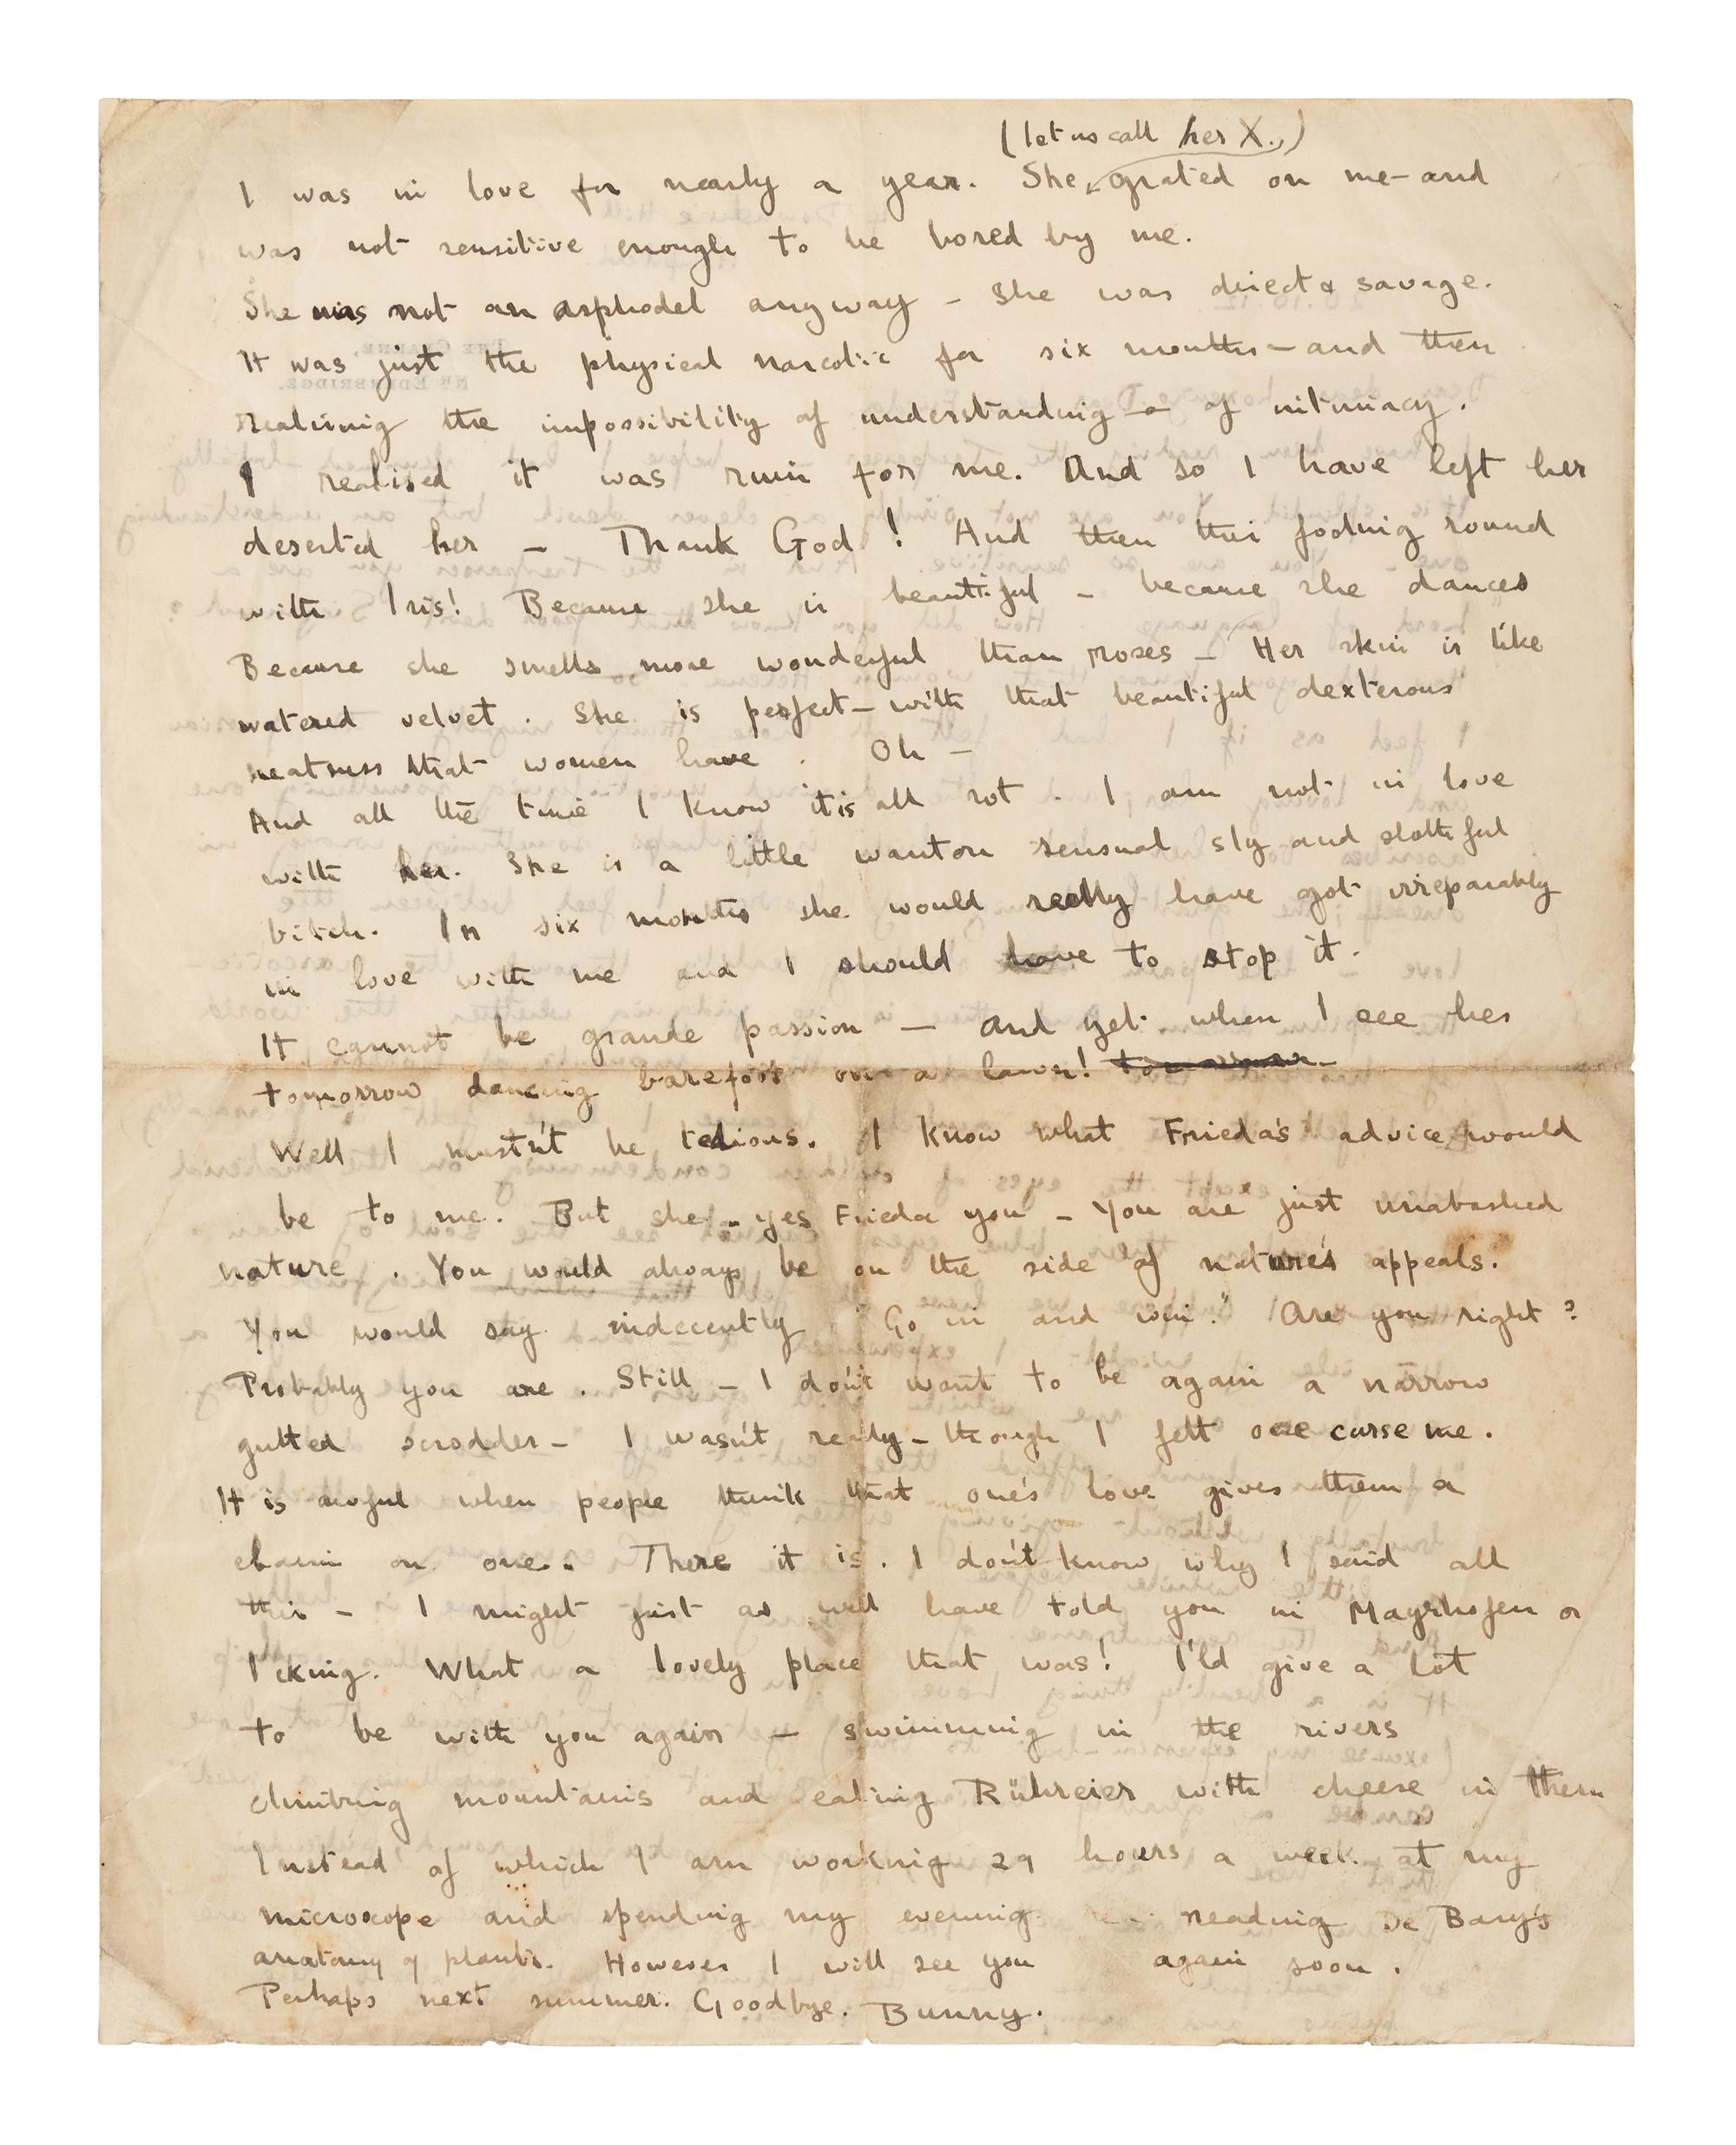 (let us call her X.)
I was in love for nearly a year. She grated on me - and
was not sensitive enough to be bored by me.
She was not an asphodel anyway - she was direct & savage.
It was just the physical narcotic for six months - and then
realising the impossibility of understanding - or of intimacy.
I realised it was ruin for me. And so I have left her
deserted her - Thank God! And then this fooling round
with Iris! Because she is beautiful - because she dances
Because she smells more wonderful than roses - Her skin is like
watered velvet. She is perfect - with that beautiful dexterous
neatness that women have. Oh -
And all the time I know it is all rot. I am not in love
with her. She is a little wanton sensual sly and slothful
bitch. In six months she would really have got irreparably
in love with me and I should have to stop it.
It cannot be grande passion - and yet when I see her
tomorrow dancing barefoot on a lawn! tomorrow
Well I mustn't be tedious. I know what Frieda's advice would
be to me. But she - yes Frieda you - You are just unabashed
nature. You would always be on the side of nature's appeals.
You would say indecently "Go in and win." Are you right?
Probably you are. Still - I don't want to be again a narrow
gutted - I wasn't really - though I felt one curse me.
It is awful when people think that one's love gives them a
claim on one. There it is. I don't know why I said all
this - I might just as well have told you in Mayrhofen or
Icking. What a lovely place that was! I'ld give a lot
to be with you again - swimming in the rivers
climbing mountains and eating Rühreier with cheese in them
Instead of which I am working 29 hours a week at my
microscope and spending my evening reading De Bary's
anatomy of plants. However I will see you again soon.
Perhaps next summer. Goodbye. Bunny.